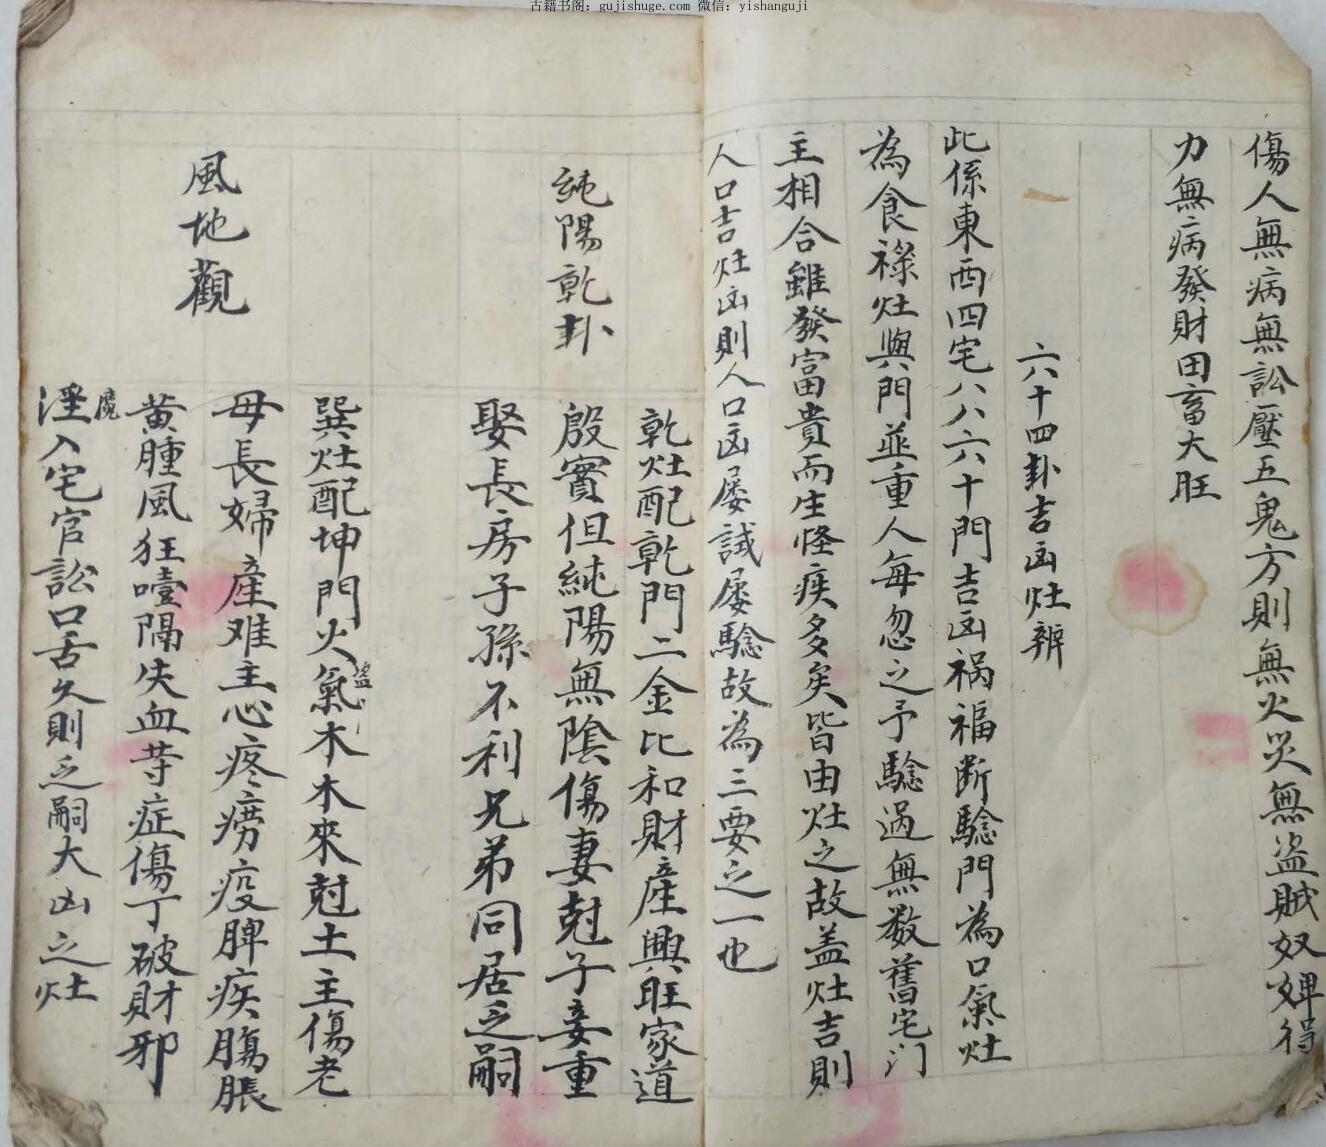 古籍书阁：gujishuge.com 微信：yishanguji
傷人無病無訟壓五鬼方則無火災無盗賊奴婢得
力無病發財田畜大旺
六十四卦吉凶灶辨
此係東西四宅八八六十門吉凶祸福断驗門為口氣灶
為食祿灶與門並重人每忽之予驗過無数舊宅门
主相合雖發富貴而生怪疾多矣皆由灶之故盖灶吉則
人口吉灶凶則人口凶屡試屡驗故為三要之一也
純陽乾卦
乾灶配乾門二金比和財產興旺家道
殷實但純陽無陰傷妻尅子妾重
娶長房子孫不利兄弟同居乏嗣
風地觀
巽灶配坤門火氣盗木木來尅土主傷老
母長婦產难主心疼痨疫脾疾腸脹
黄腫風狂噎隔失血等症傷丁破財邪
魔淫入宅官訟口舌久則乏嗣大凶之灶